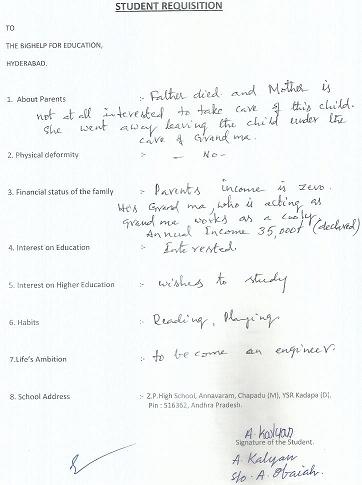 STUDENT REQUISITION
TO
THE BIGHELP FOR EDUCATION,
HYDERABAD.
1. About Parents :- Father died and Mother is
not at all interested to take care of this child.
She went away leaving the child under the
care of Grand ma.
2. Physical deformity :- – No –
3. Financial status of the family :- Parents income is zero.
His Grand ma, who is acting as
Grand ma works as a cooly
Annual Income 35,000/- (declared)
4. Interest on Education :- Interested.
5. Interest on Higher Education :- wishes to study
6. Habits :- Reading, Playing
7.Life's Ambition :- to become an engineer.
8. School Address :- Z.P.High School, Annavaram, Chapadu (M), YSR Kadapa (D),
Pin : 516362, Andhra Pradesh.
A. Kalyan
Signature of the Student.
A. Kalyan
S/o. A. Obaiah.